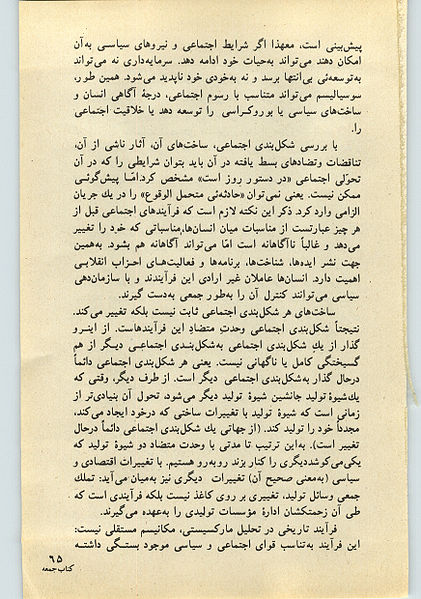 پیش‌بینی است، معهذا اگر شرایط اجتماعی و نیروهای سیاسـی به‌آن
امکان دهند می‌تواند به‌حیات خود ادامه دهد. سرمایه‌داری نه می‌تواند
به‌توسعه‌ئی بی‌انتها برسد و نه به‌خودی خود ناپدید می‌شود. همین طور،
سوسیالیسم می‌تواند متناسب با رسوم اجتماعی، درجهٔ آگاهی انسان و
ساخت‌های سیاسی یا بوروکراسـی را توسعه دهد یا خلاقیت اجتماعی
را.
با بررسی شکل‌بندی اجتماعی، ساخت‌های آن، آثار ناشی از آن،
تناقضات وتضادهای بسط یافته در آن باید بتوان شرایطی را که در آن
تحوّلی اجتماعی «در دستور روز است» مشخص کرد.امّا پیش‌گوئـی
ممکن نیست. یعنی نمی‌توان «حادثه‌ئی متحمل الوقوع» را در یك جریان
الزامی وارد کرد. ذکر این نکته لازم است که فرآیندهای اجتماعی قبل از
هر چیز عبارتست از مناسبات میان انسان‌ها،مناسباتی که خود را تغییر
می‌دهد و غالباً ناآگاهانه است امّا می‌تواند آگاهانه هم بشود. به‌همین
جهت نشر ایده‌ها، شناخت‌ها، برنامه‌ها و فعالیت‌های احـزاب انقلابـی
اهمیت دارد. انسان‌ها عاملان غیر ارادی این فرآیندند و با سازمان‌دهی
سیاسی می‌توانند کنترل آن را به‌طور جمعی به‌دست گیرند.
ساخت‌های هر شکل‌بندی اجتماعی ثابت نیست بلکه تغییر می‌کند.
نتیجتاً شکل‌بندی اجتماعی وحدتِ متضادِ این فرآیندهاست. از اینـرو
گذار از یكِ شکل‌بندی اجتماعی به‌شکل‌بنـدی اجتماعـی دیگر از هم
گسیختگی کامل یا ناگهانی نیست. یعنی هر شکل‌بندی اجتماعی دائماً
درحال گذار به‌شکل‌بندی اجتماعی دیگر است. از طرف دیگر، وقتی که
یك‌شیوهٔ تولید جانشین شیوهٔ تولید دیگر می‌شود، تحول آن بنیادی‌تر از
زمانی است که شیوهٔ تولید با تغییرات ساختی که درخود ایجاد می‌کند،
مجدداً خود را تولید کند. (از جهاتی یك شکل‌بندی اجتماعی دائماً درحال
تغییر است). به‌این ترتیب تا مدتی با وحدت متضاد دو شیوهٔ تولید که
یکی‌می‌کوشددیگری را کنار بزند روبه‌رو هستیم. با تغییرات اقتصادی و
سیاسی (به‌معنی صحیح آن) تغییرات دیگری نیز به‌میان می‌آید: تملك
جمعی وسائل تولید، تغییری بر روی کاغذ نیست بلکه فرآیندی است که
طی آن زحمتکشان ادارهٔ مؤسسات تولیدی را به‌عهده می‌گیرند.
فرآیند تاریخی در تحلیل مارکسیستی، مکانیسم مستقلی نیست:
این فرآیند به‌تناسب قوای اجتماعی و سیاسی موجود بستـگی داشتـه
۶۵
کتاب جمعه